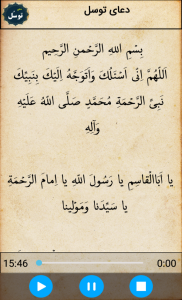 دعای توسل
توسل
بِسْمِ اللهِ الرَّحْمنِ الرَّحيمِ
اَللّهُمَّ اِنّى اَسْئَلُكَ وَاَتَوَجَّهُ اِلَيْكَ بِنَبِيِّكَ
نَبِىِّ الرَّحْمَةِ مُحَمَّدٍ صَلَّى اللهُ عَلَيْهِ
وَآلِهِ
يا اَبَاالْقاسِمِ يا رَسُولَ اللهِ يا اِمامَ الرَّحْمَةِ
يا سَيِّدَنا وَمَوْلينا
15:46 0:00